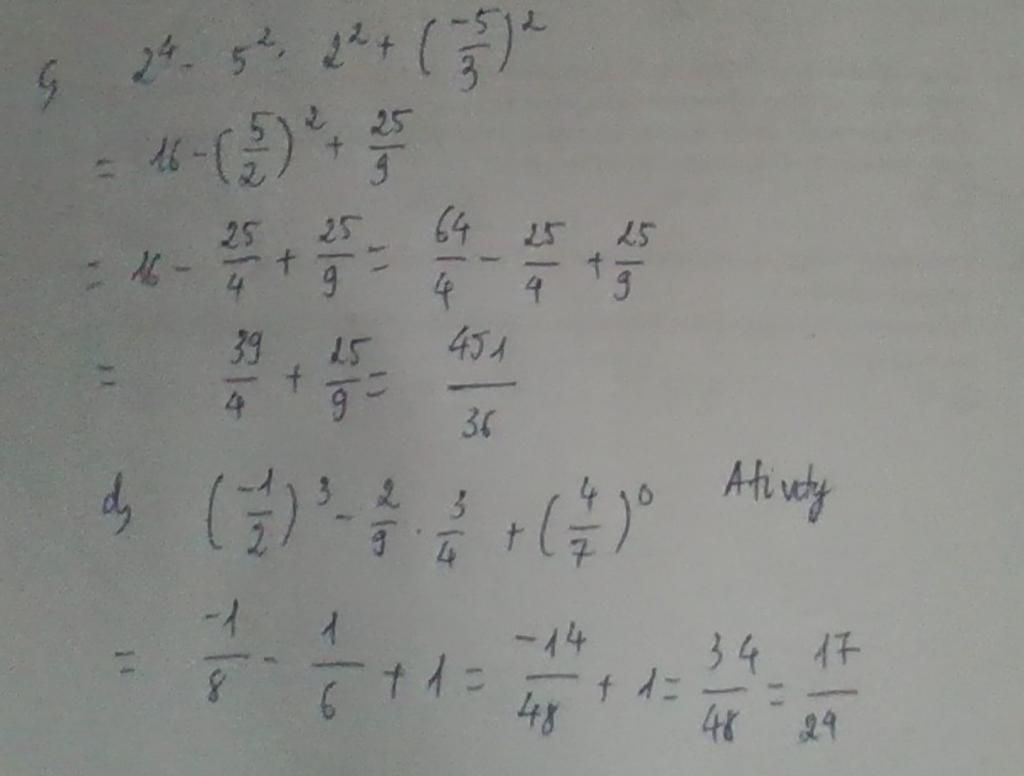 c, 2⁴ - 5² : 2² + (-5/3)²
= 16 - (5/2)² + 25/9
= 16 - 25/4 + 25/9 = 64/4 - 25/4 + 25/9
= 39/4 + 25/9 = 451/36
d, (-1/2)³ - 2/9 . 3/4 + (4/7)⁰
= -1/8 - 1/6 + 1 = -14/48 + 1 = 34/48 = 17/24